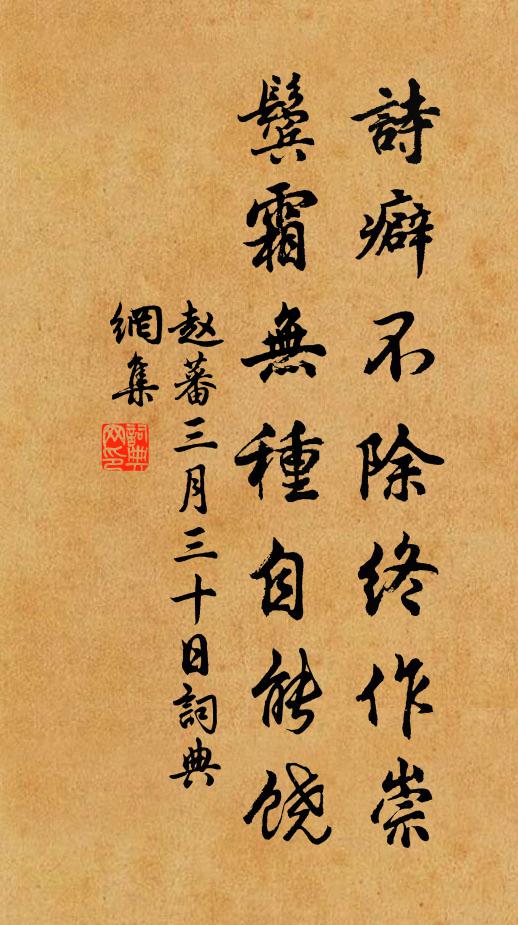 詩癖不除終作崇
鬢霜無種自能饶
赵蕃三月三十日詞典
網集
詞典
网印